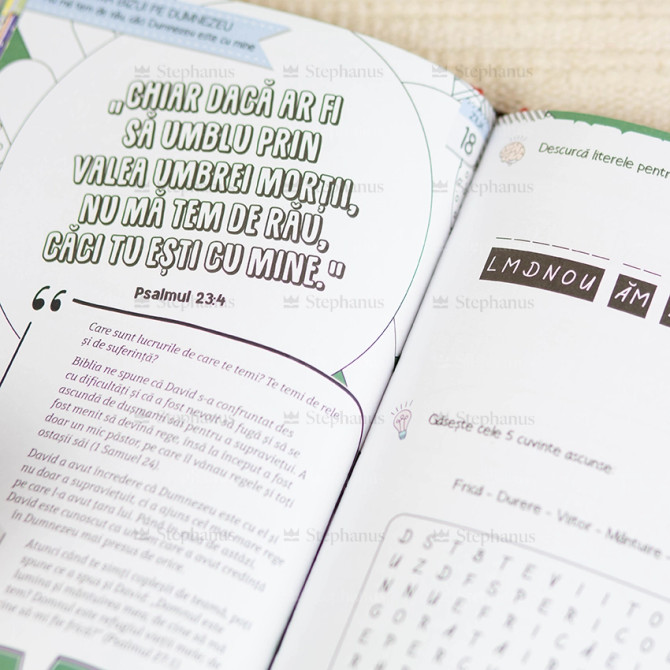 BIZUI PE DUMNEZEU
mă tem de rău, căci Dumnezeu este cu mine.
„CHIAR DACĂ AR FI
SĂ UMBLU PRIN
VALEA UMBREI MORȚII,
NU MĂ TEM DE RĂU,
CĂCI TU EȘTI CU MINE."
Psalmul 23:4
Care sunt lucrurile de care te temi? Te temi de rele
și de suferință?
Biblia ne spune că David s-a confruntat des
cu dificultăți și că a fost nevoit să fugă și să se
ascundă de dușmanii săi pentru a supraviețui. A
fost menit să devină rege, însă la început a fost
doar un mic păstor, pe care îl vânau regele și toți
ostașii săi (1 Samuel 24).
David a avut încredere că Dumnezeu este cu el și
nu doar a supraviețuit, ci a ajuns cel mai mare rege
pe care l-a avut țara lui. Până în ziua de astăzi,
David este cunoscut ca un om care a avut credința
în Dumnezeu mai presus de orice.
Atunci când te simți copleșit de teamă, poți
spune ce a spus și David: „Domnul este
lumina și mântuirea mea, de cine să mă
tem? Domnul este refugiul vieții mele, de
cine să-mi fie frică?" (Psalmul 27:1)
18
Descurcă literele pentr
LMDNOU ĂM
Găsește cele 5 cuvinte ascunse.
Frică - Durere - Viitor - Mântuire
D S T B T E V I I T O
U Z D F S P E R I C
N N U E F R I C Ă E
G O R A T A I
E P E R C
Stephanus